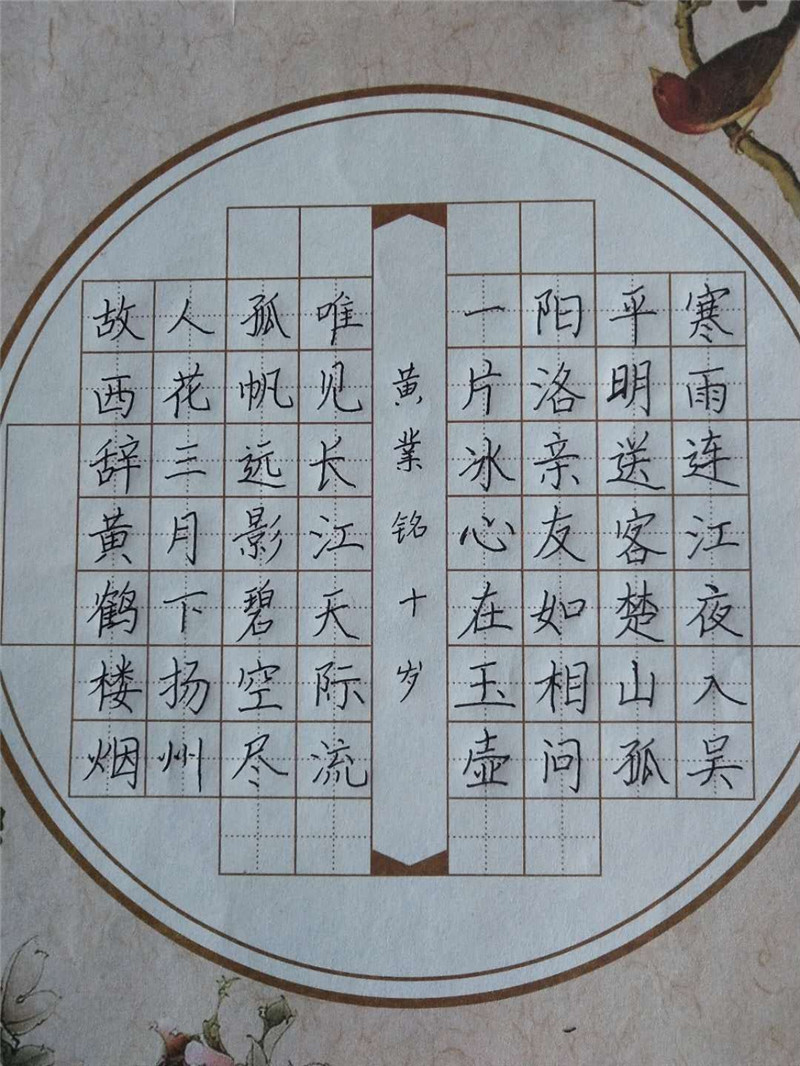 寒雨连江夜入吴
平明送客楚山孤
阳洛亲友如相问
一片冰心在玉壶
黄業铭十岁
故西辞黄鹤楼烟
人花三月下扬州
孤帆远影碧空尽
唯见长江天际流